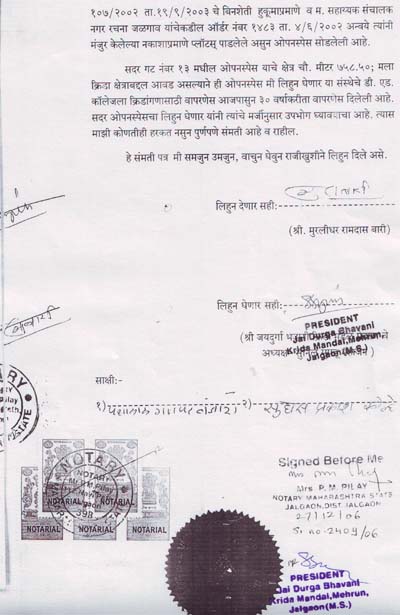 १०७/२००२ ता.१९/९/२००३ चे बिनशेती हुकूमाप्रमाणे व म. सहाय्यक संचालक
नगर रचना जळगाव यांचेकडील ऑर्डर नंबर १४८३ ता. ४/६/२००२ अन्वये त्यांनी
मंजुर केलेल्या नकाशाप्रमाणे प्लॉटस् पाडलेले असुन ओपनस्पेस सोडलेली आहे.
सदर गट नंबर १३ मधील ओपनस्पेस याचे क्षेत्र चौ. मीटर ७५८.५०; मला
क्रिडा क्षेत्राबद्दल आवड असल्याने ही ओपनस्पेस मी लिहुन घेणार या संस्थेचे डी. एड.
कॉलेजला क्रिडांगणासाठी वापरणेस आजपासुन ३० वर्षाकरीता वापरणेस दिलेली आहे.
सदर ओपनस्पेसचा लिहुन घेणार यांनी त्यांचे मर्जीनुसार उपभोग घ्यावयाचा आहे. त्यास
माझी कोणतीही हरकत नसुन पुर्णपणे संमती आहे व राहील.
हे संमती पत्र मी समजुन उमजुन, वाचुन घेवुन राजीखुशीने लिहुन दिले असे.
लिहुन देणार सही:-
(श्री. मुरलीधर रामदास बारी)
लिहुन घेणार सही:-
PRESIDENT
Jai Durga Bhavani
Krida Mandal, Mehrun,
Jalgaon(M.S.)
(श्री जयदुर्गा
अध्यक्ष
साक्षी:-
१)
२) सुहास प्रकाश
Signed Before Me
Mrs. P. M. PILAY
NOTARY MAHARASHTRA STATE
JALGAON, DIST. JALGAON
27/12/06
Sr. no-2409/06
NOTARY
NOTARIAL NOTARIAL NOTARIAL
NOTARIAL NOTARIAL
PRESIDENT
Jai Durga Bhavani
Krida Mandal, Mehrun,
Jalgaon(M.S.)